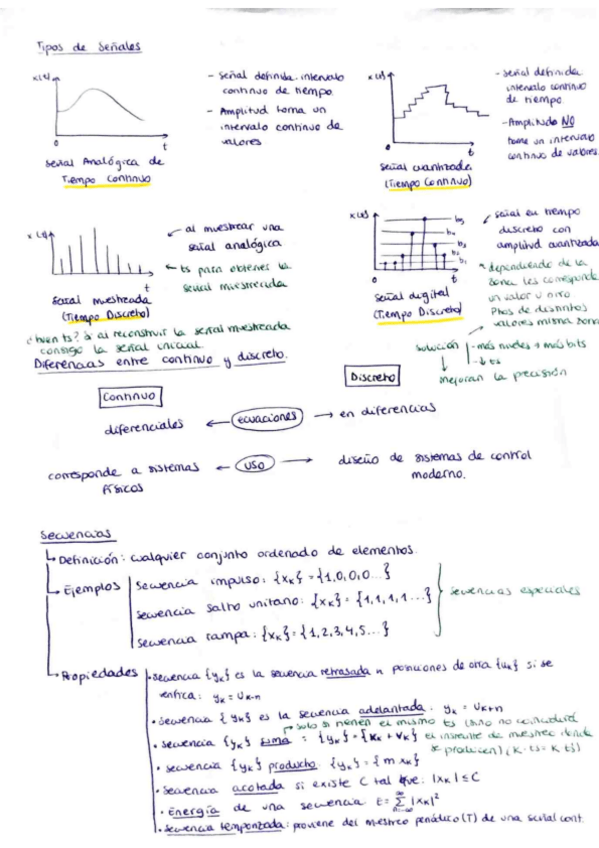 Tipos de Señales
x(t)
t
0
Señal Analógica de
Tiempo Continuo
- Señal definida. intervalo
continuo de tiempo.
- Amplitud toma un
intervalo continuo de
valores
x(t)
0
t
Señal cuantizada
(Tiempo Continuo)
- Señal definida
intervalo continuo
de tiempo
- Amplitud NO
tome un intervalo
continuo de valores.
x(t)
0
t
Señal muestreada
(Tiempo Discreto)
al muestrear una
señal analógica
ts para obtener la
señal muestreada
x(t)
b5
b4
b3
b2
b1
0
t
Señal digital
(Tiempo Discreto)
señal en tiempo
discreto con
amplitud cuantizada
* dependiendo de la
zona les corresponde
un valor u otro
Ptos de distintos
valores misma zona
¿buen ts? Si al reconstruir la señal muestreada
consigo la señal inicial.
solución
- más niveles + más bits
- ↓ ts
mejoran la precisión
Diferencias entre continuo y discreto.
Continuo
Discreto
diferenciales ← ecuaciones → en diferencias
corresponde a sistemas
físicos
← uso →
diseño de sistemas de control
moderno.
Secuencias
Definición: cualquier conjunto ordenado de elementos.
Ejemplos
secuencia impulso: {xk} = {1,0,0,0...}
secuencia salto unitario: {xk} = {1,1,1,1...}
secuencia rampa: {xk} = {1,2,3,4,5...}
secuencias especiales
Propiedades
· secuencia {yk} es la secuencia retrasada n posiciones de otra {uk} si se
verifica: yk = Uk-n
· secuencia {yk} es la secuencia adelantada. yk = Uk+n
solo si tienen el mismo ts (sino no coincidirá
· secuencia {yk} suma : {yk} = {xk + vk} el instante de muestreo donde
se producen) (k·ts = k ts)
· secuencia {yk} producto. {yk} = {m xk}
· secuencia acotada si existe C tal que: |xk| ≤ C
· Energía de una secuencia E = Σ |xk|²
· Secuencia temporizada: proviene del muestreo periódico (T) de una señal cont.